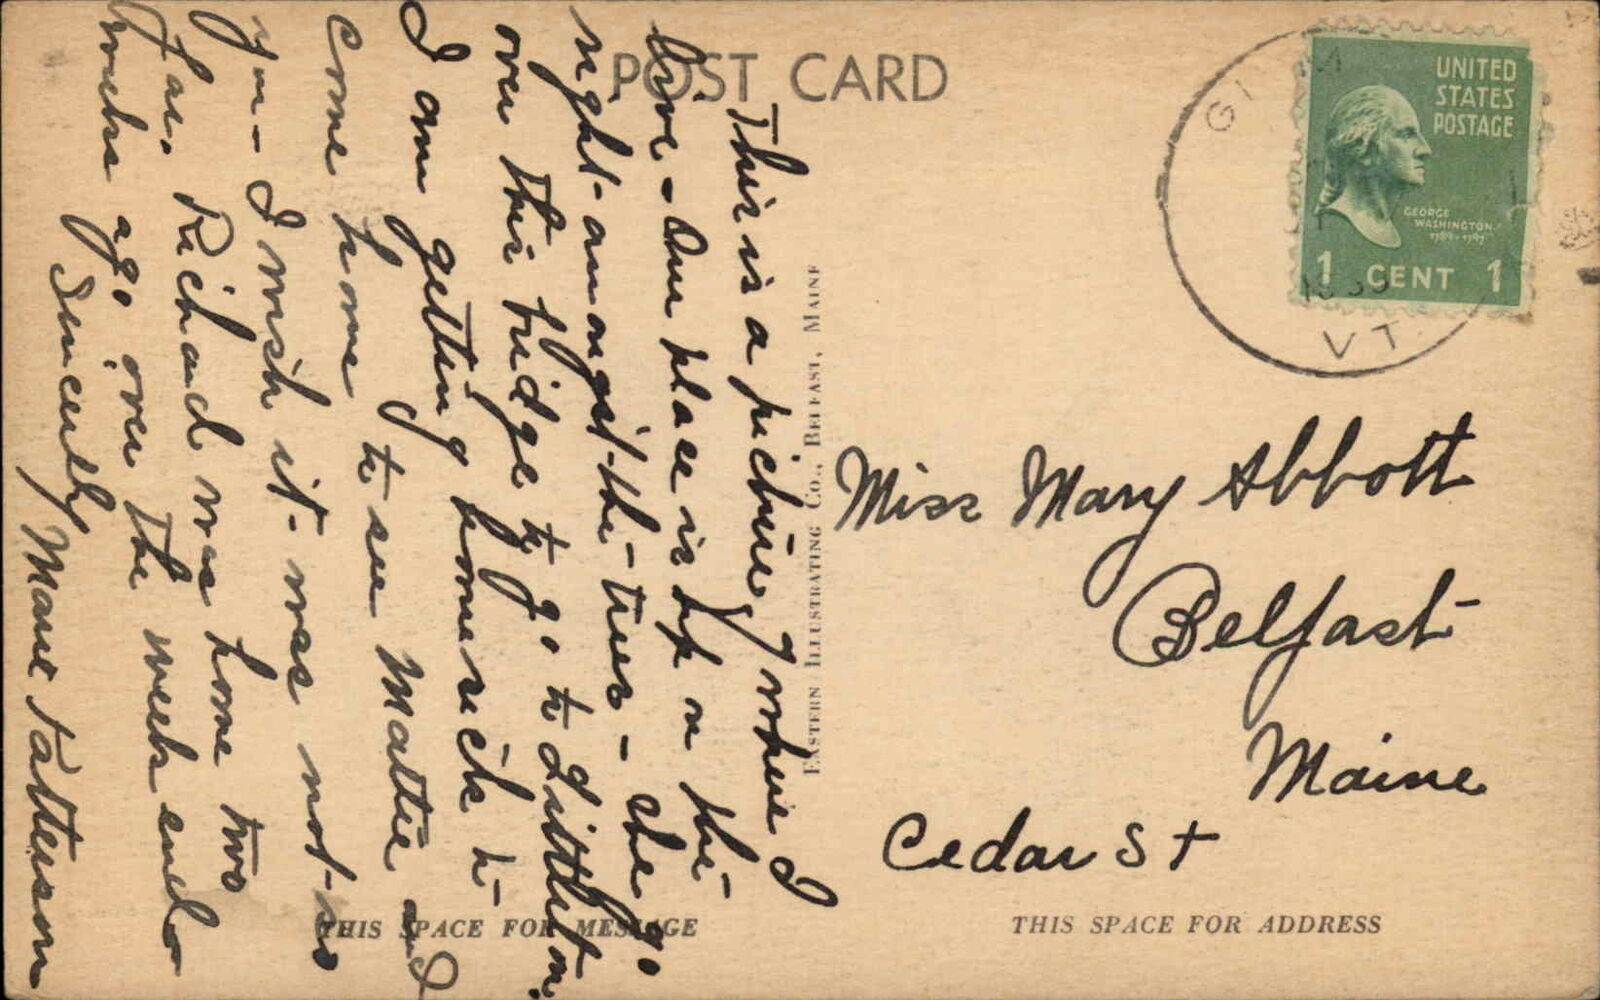 POST CARD
This is a picture of where I
live - Our place is up on the
right - amongst the - trees - We go
over this bridge to go to Littleton.
I am getting homesick to
come home to see Mattie and
you - I wish it - was not - so
far. Richard was home two
weeks ago over the week end
Sincerely
Mane Patterson
EASTERN ILLUSTRATING CO., BELFAST, MAINE
UNITED
STATES
POSTAGE
GEORGE
WASHINGTON
1789-1797
1 CENT 1
VT.
Miss Mary Abbott
Belfast
Maine
Cedar St
THIS SPACE FOR MESSAGE
THIS SPACE FOR ADDRESS